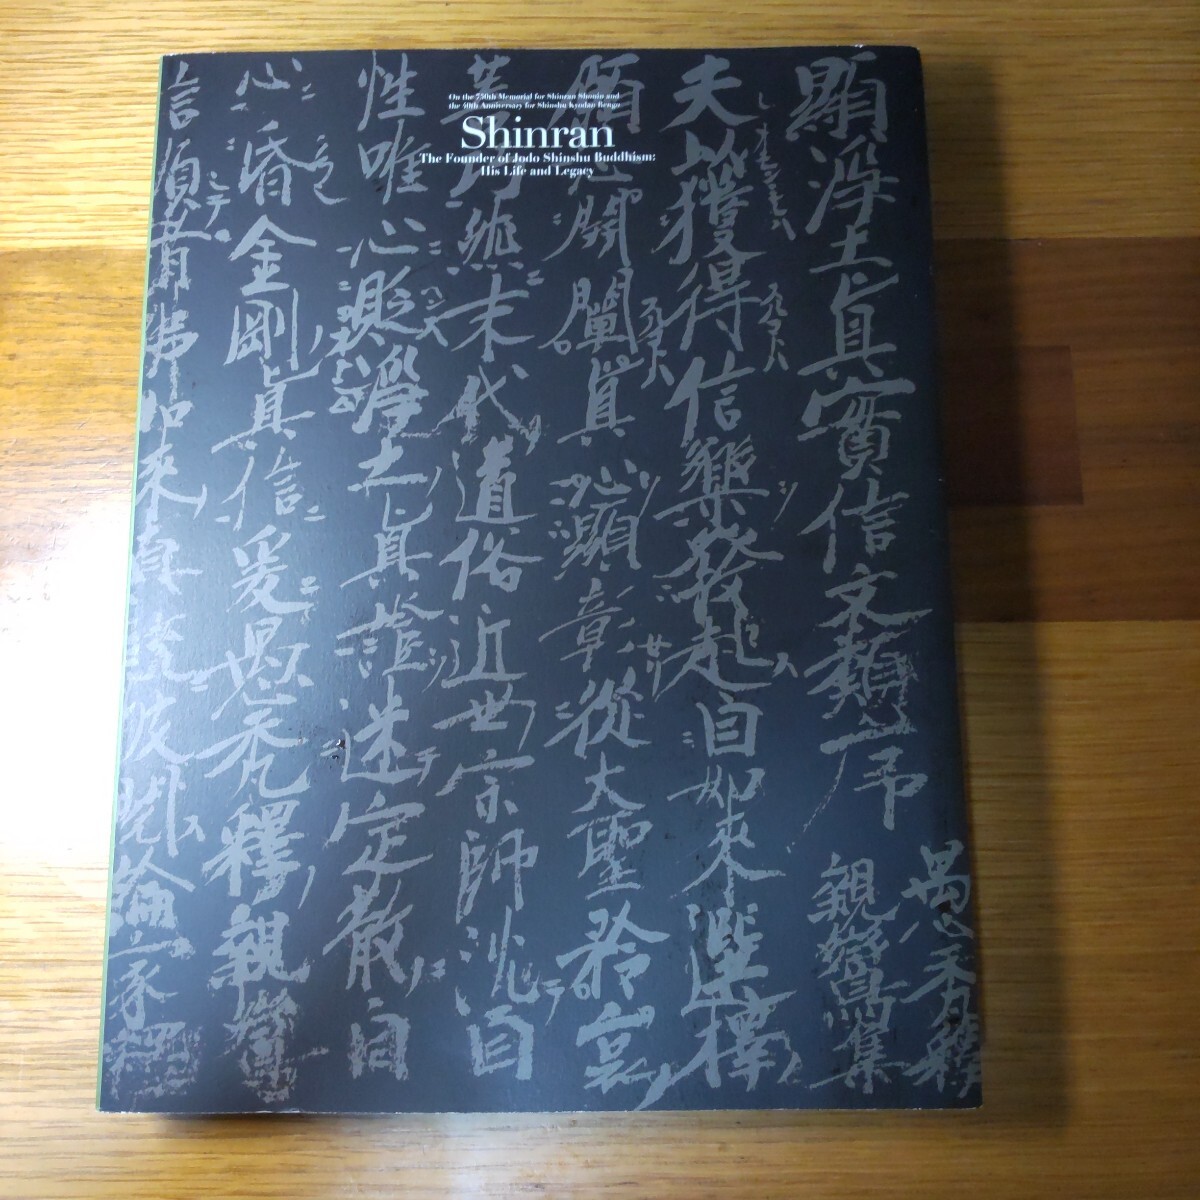 On the 750th Memorial for Shinran Shonin and
the 40th Anniversary for Shinshu Kyodan Rengo
Shinran
The Founder of Jodo Shinshu Buddhism:
His Life and Legacy
顯淨土眞實信文類序
愚禿釋
親鸞集
夫以獲得信樂發起自如來選擇
願心開闡眞心顯彰從大聖矜哀
善巧然末代道俗近世宗師沈自
性唯心貶淨土眞證迷定散自
心昏金剛眞信爰愚禿釋親鸞
信順諸佛如來眞說披閱論家釋